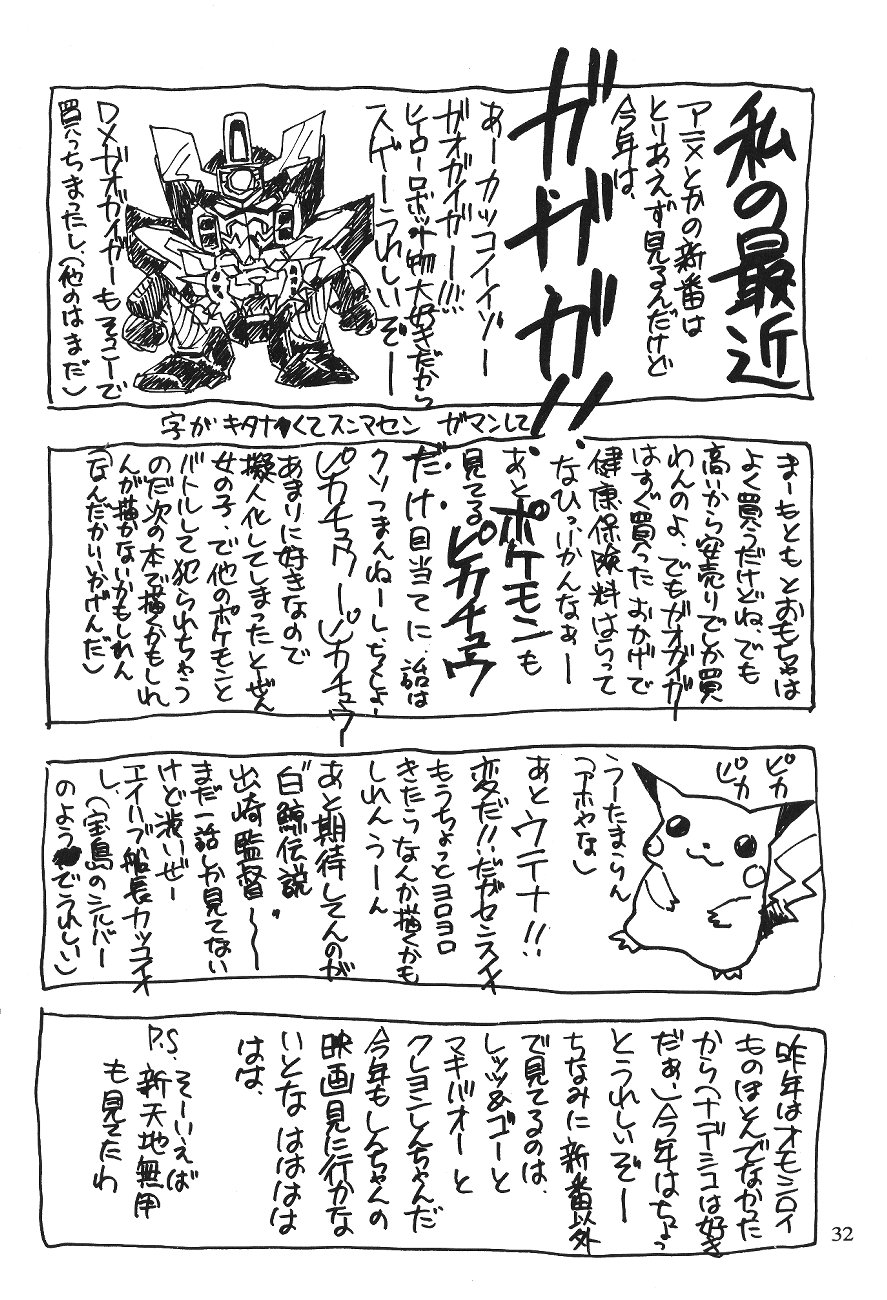 私の最近
アニメとかの新番は
とりあえず見るんだけど
今年は、
ガガガ!!
あーカッコイイゾー
ガオガイガー!!!
ヒーローロボット物大好きだから
スゲーうれしいぞー
DXガオガイガーもソッコーで
買っちまったし、(他のはまだ)
字がキタナくてスンマセン ガマンして
まーもともとおもちゃは
よく買うだけどね、でも
高いから安売りでしか買
わんのよ、でもガオガイガー
はすぐ買った おかげで
健康保険料はらって
なひっ、いかんなぁー
あとポケモンも
見てる ピカチュウ
だけ目当てに、話は
クソつまんねーし、ちくしょー
ピカチュウーピカチュウー
あまりに好きなので
擬人化してしまったとぜん
女の子、で他のポケモンと
バトルして犯られちゃう
のだ次の本で描くかもしれ
んが描かないかもしれん
(なんだかいいかげんだ)
ピカ
ピカ
うーたまらん
(アホやな)
あとウテナ!!
変だ!!だがセンスイイ
もうちょっとヨロヨロ
きたらなんか描くかも
しれん うーん
あと期待してんのが
白鯨伝説"
出崎監督〜
まだ一話しか見てない
けど渋いぜー
エイハブ船長カッコイイ
し、(宝島のシルバー
のようでうれしい)
昨年はオモシロイ
ものほとんでなかった
から(ナデシコは好き
だぁ)今年はちょっ
とうれしいぞー
ちなみに新番以外
で見てるのは、
レッツ&ゴーと
マキバオーと
クレヨンしんちゃんだ
今年もしんちゃんの
映画見に行かな
いとな はははは
はは、
P.S. そーいえば
新天地無用
も見てたわ
32